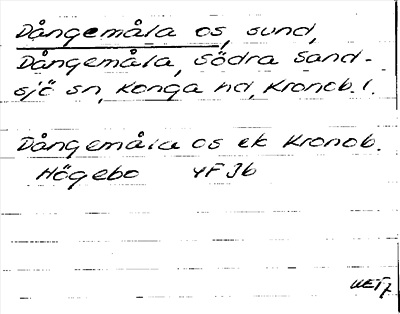 Dångemåla os, sund,
Dångemåla, Södra Sand-
sjö sn, Konga hd, Kronob. l.
Dångemåla os ek Kronob.
Högebo 4F Jb